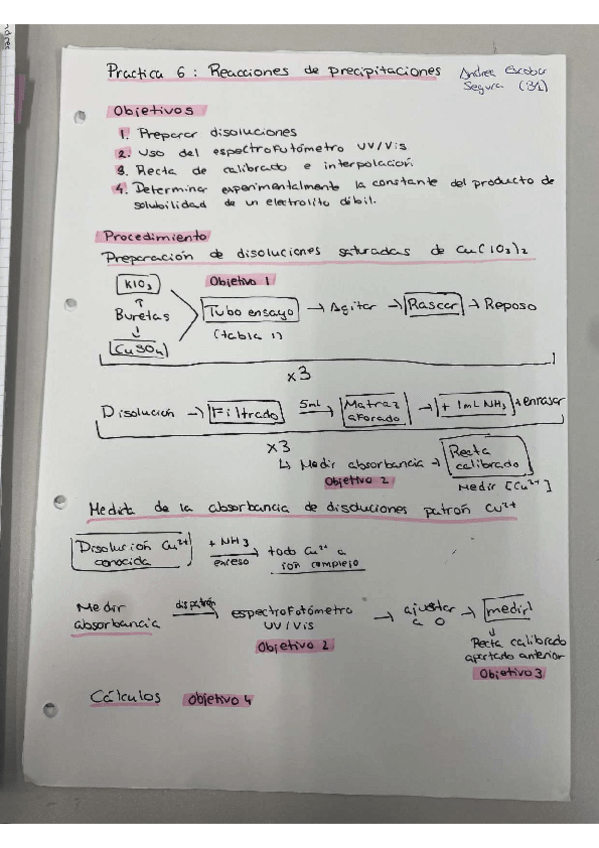 Practica 6: Reacciones de precipitaciones
Andrea Escobar
Segura (B1)
Objetivos
1. Preparar disoluciones
2. Uso del espectrofotómetro UV/Vis
3. Recta de calibrado e interpolación
4. Determinar experimentalmente la constante del producto de
solubilidad de un electrolito débil.
Procedimiento
Preparación de disoluciones saturadas de Cu(IO3)2
Objetivo 1
KIO3
Buretas
CuSO4
Tubo ensayo → Agitar → Rascar → Reposo
(tabla 1)
x3
Disolución → Filtrado 5ml → Matraz aforado → + 1mL NH3 + enrasar
x3
↳ Medir absorbancia → Recta calibrado
Objetivo 2
Medir [Cu2+]
Medida de la absorbancia de disoluciones patrón Cu2+
Disolución Cu2+ conocida + NH3 exceso → todo Cu2+ a ion complejo
Medir absorbancia dis patrón → espectrofotómetro UV/Vis → ajustar a 0 → medir
Objetivo 2
Recta calibrado
apartado anterior
Objetivo 3
Cálculos Objetivo 4